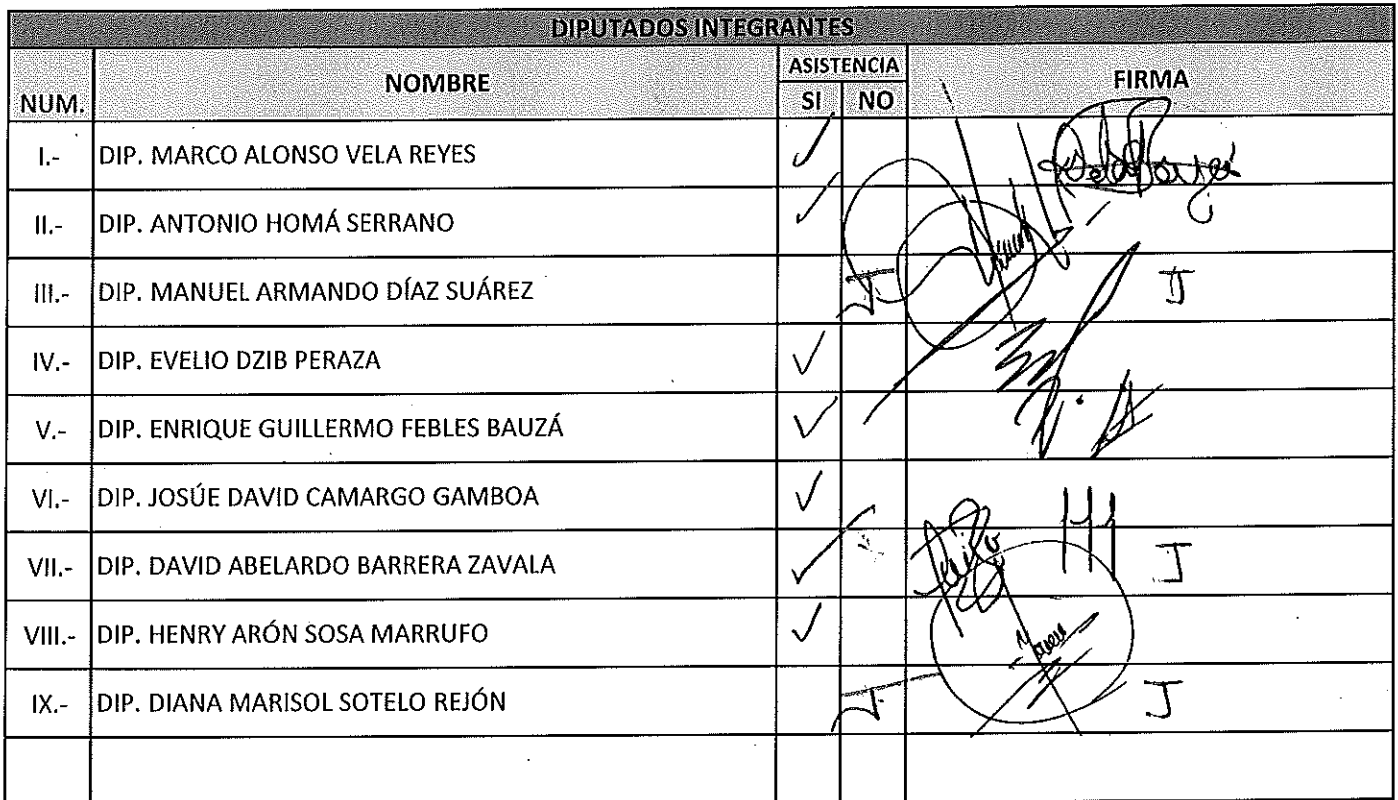 DIPUTADOS INTEGRANTES
NUM. NOMBRE ASISTENCIA FIRMA
SI NO
I.- DIP. MARCO ALONSO VELA REYES ✓
II.- DIP. ANTONIO HOMÁ SERRANO ✓
III.- DIP. MANUEL ARMANDO DÍAZ SUÁREZ J J
IV.- DIP. EVELIO DZIB PERAZA ✓
V.- DIP. ENRIQUE GUILLERMO FEBLES BAUZÁ ✓
VI.- DIP. JOSÚE DAVID CAMARGO GAMBOA ✓
VII.- DIP. DAVID ABELARDO BARRERA ZAVALA ✓ J
VIII.- DIP. HENRY ARÓN SOSA MARRUFO ✓
IX.- DIP. DIANA MARISOL SOTELO REJÓN J J